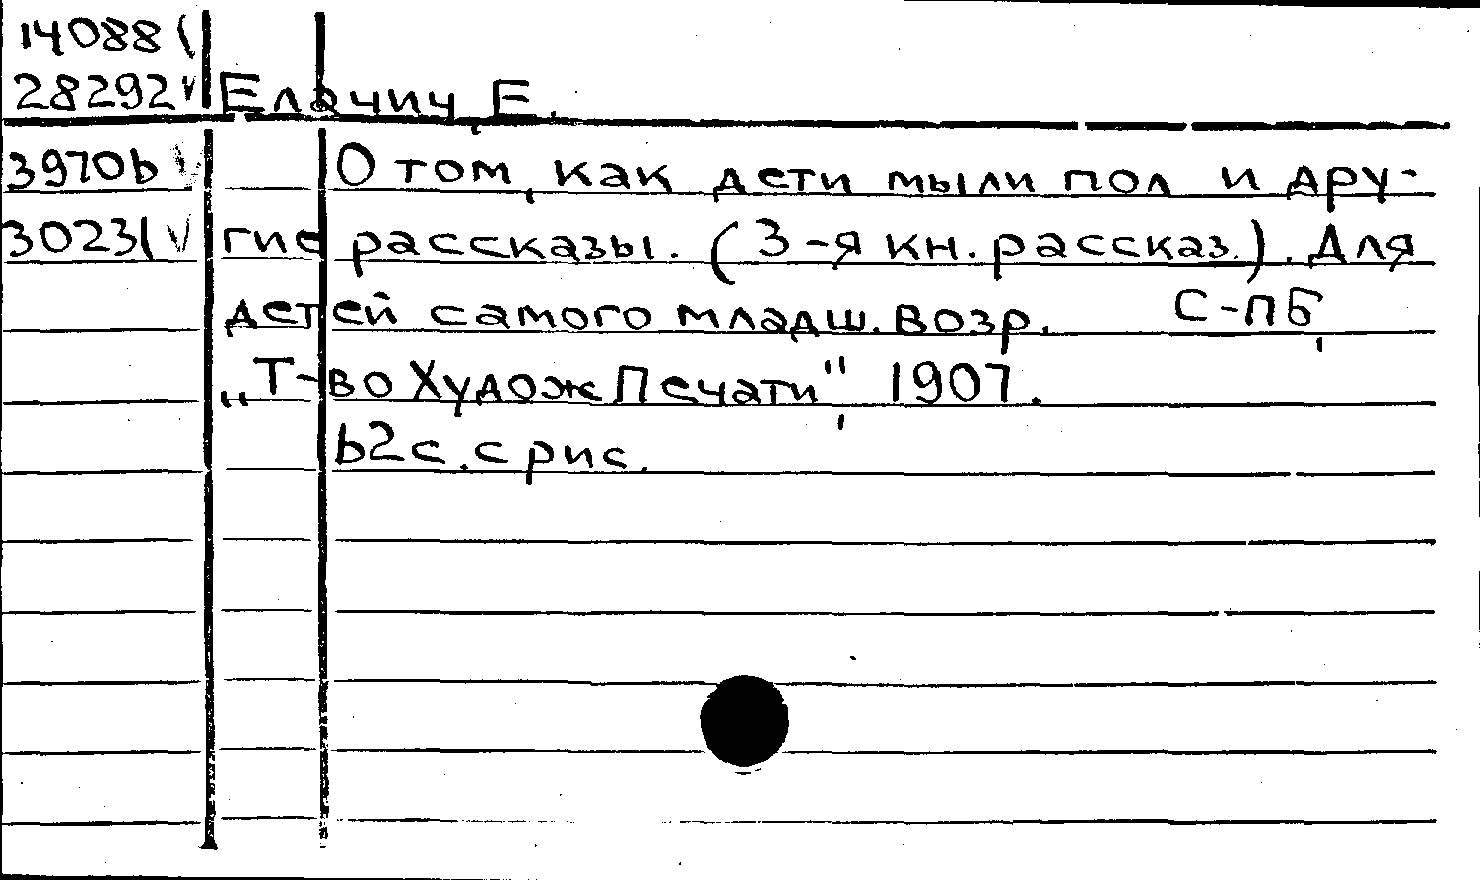 14088 (
28292 v Елачич, Е.
3970b v О том, как дети мыли пол и дру-
3023( v гие рассказы. (3-я кн. рассказ.). Для
детей самого младш. возр. С-ПБ,
„Т-во Худож Печати", 1907.
b2 с. с рис.